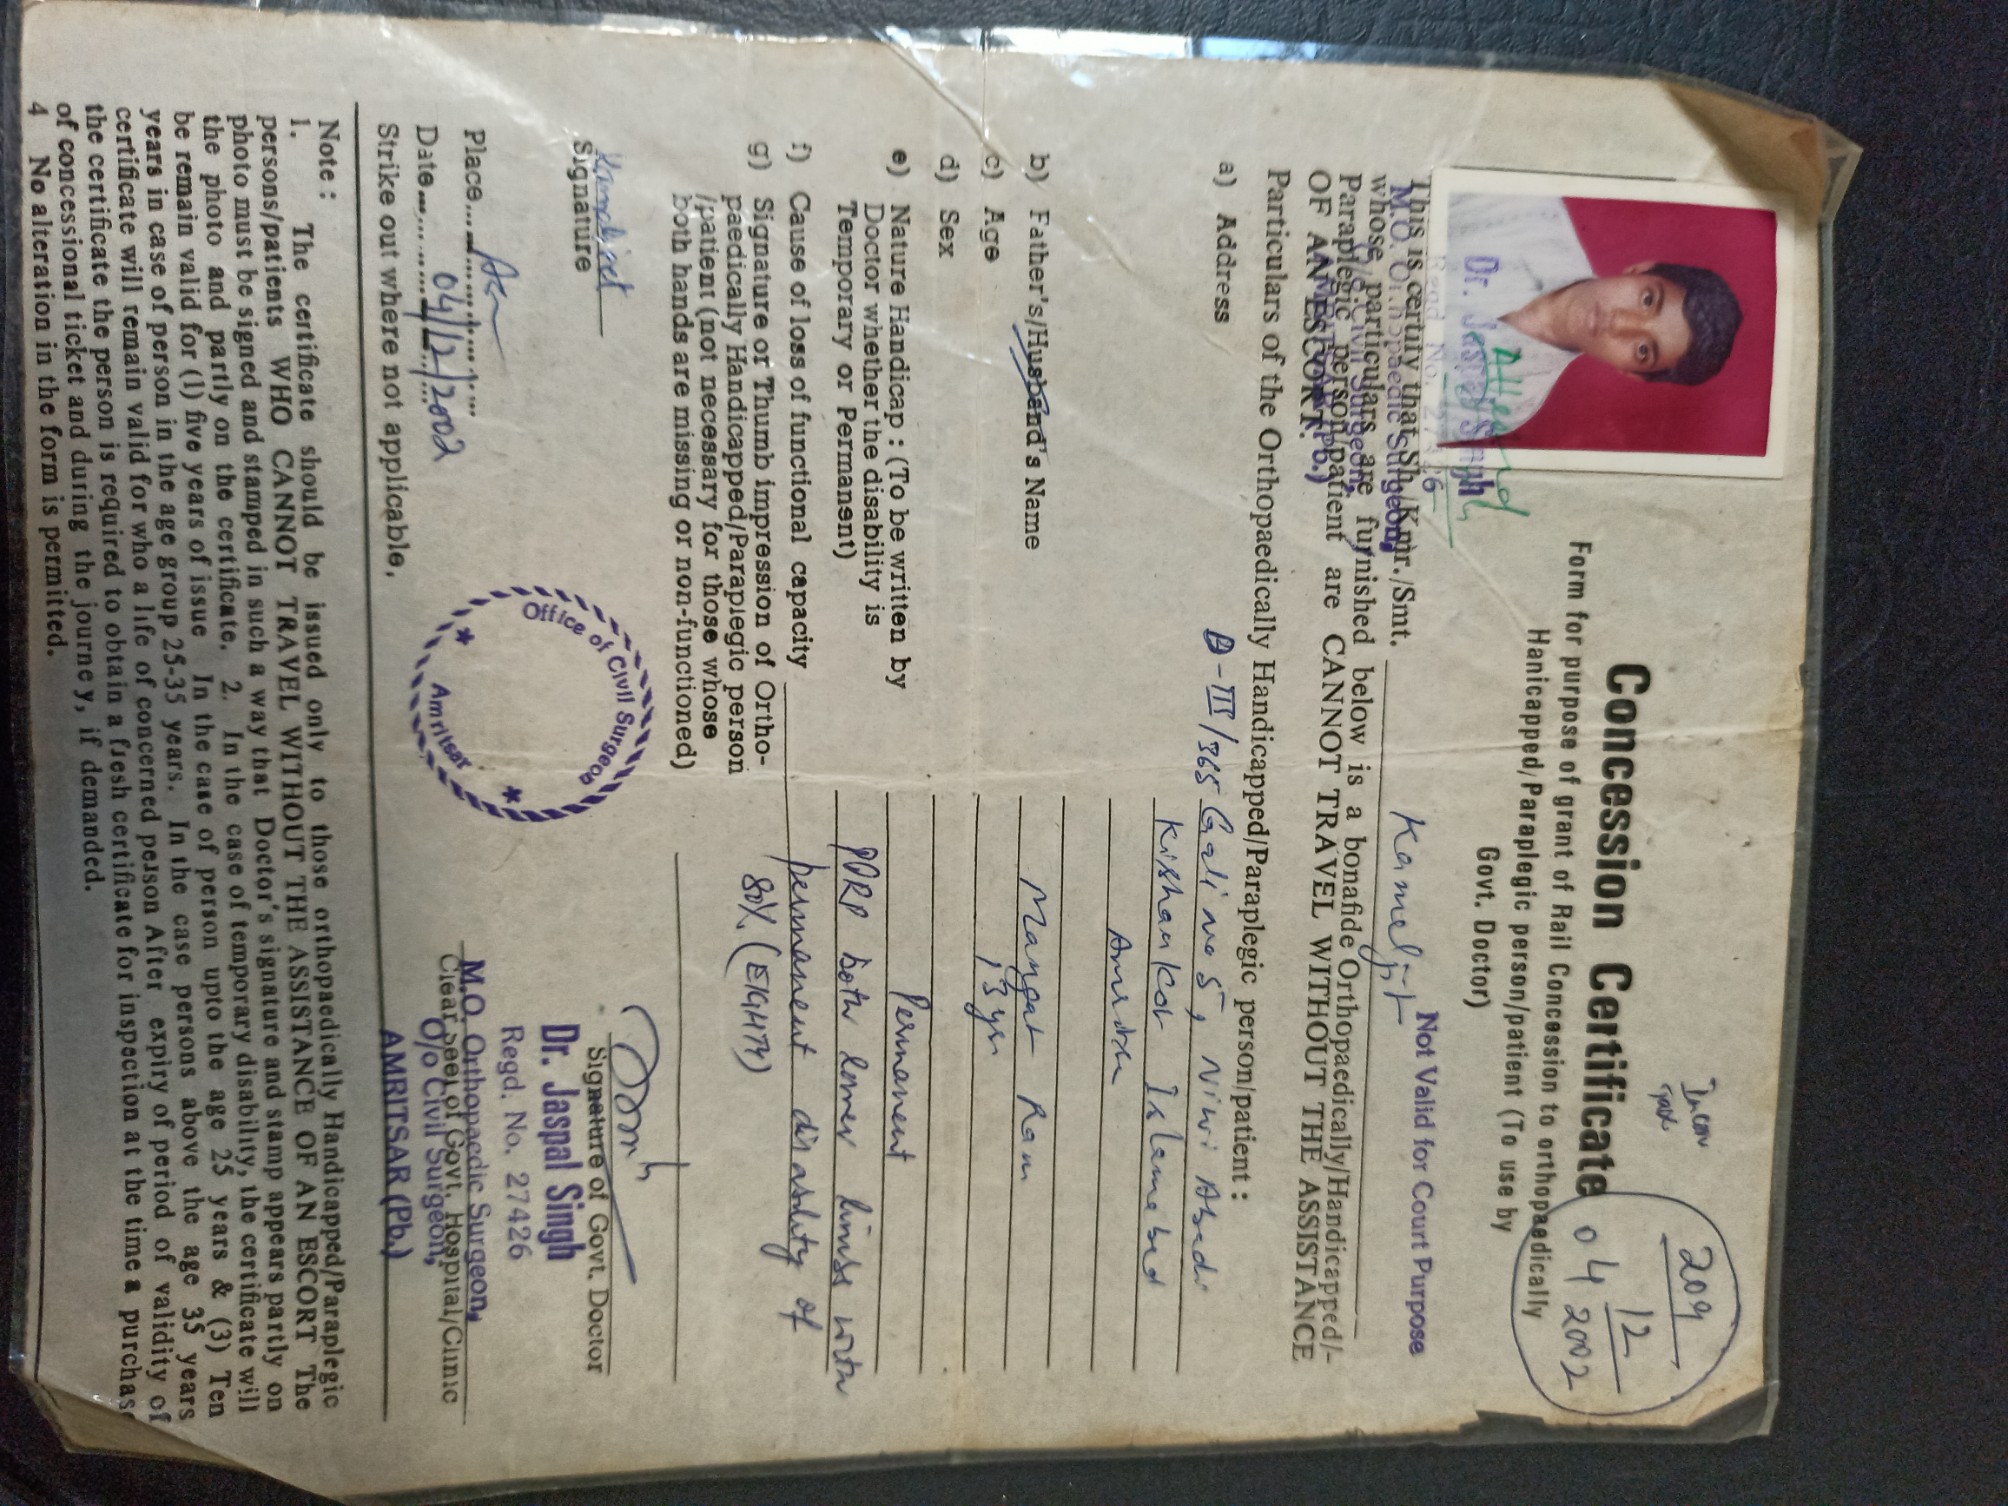 Incom
Tax
209
12
04 2002
Concession Certificate
Form for purpose of grant of Rail Concession to orthopaedically
Hanicapped/Paraplegic person/patient (To use by
Govt. Doctor)
Attested
Dr. Jaspal Singh
Regd. No. 27426
M.O. Orthopaedic Surgeon,
O/o Civil Surgeon,
AMRITSAR (Pb.)
Not Valid for Court Purpose
This is certify that Sh./Kmr./Smt. Kamaljit
whose particulars are furnished below is a bonafide Orthopaedically/Handicapped/-
Paraplegic person/patient are CANNOT TRAVEL WITHOUT THE ASSISTANCE
OF AN ESCORT.
Particulars of the Orthopaedically Handicapped/Paraplegic person/patient :
a) Address B-III/365 Gali no 5, Nivi Abadi
Kishankot Islamabad
Amritsar
b) Father's/Husband's Name Mangat Ram
c) Age 13 yrs
d) Sex
e) Nature Handicap : (To be written by
Doctor whether the disability is
Temporary or Permanent) Permanent
f) Cause of loss of functional capacity PPRP both lower limbs with
permanent disability of
80% (EIGHTY)
g) Signature or Thumb impression of Ortho-
paedically Handicapped/Paraplegic person
/patient (not necessary for those whose
both hands are missing or non-functioned)
Kamaljeet
Signature
Signature of Govt. Doctor
Dr. Jaspal Singh
Regd. No. 27426
M.O. Orthopaedic Surgeon,
Clear Seel of Govt. Hospital/Clinic
O/o Civil Surgeon,
AMRITSAR (Pb.)
Office of Civil Surgeon
Amritsar
Place.... Asr
Date.... 04/12/2002
Strike out where not applicable,
Note : The certificate should be issued only to those orthopaedically Handicapped/Paraplegic
1. persons/patients WHO CANNOT TRAVEL WITHOUT THE ASSISTANCE OF AN ESCORT The
photo must be signed and stamped in such a way that Doctor's signature and stamp appears partly on
the photo and partly on the certificate. 2. In the case of temporary disability, the certificate will
be remain valid for (1) five years of issue In the case of person upto the age 25 years & (3) Ten
years in case of person in the age group 25-35 years. In the case persons above the age 35 years
certificate will remain valid for who a life of concerned person After expiry of period of validity of
the certificate the person is required to obtain a fresh certificate for inspection at the time a purchas
of concessional ticket and during the journey, if demanded.
4 No alteration in the form is permitted.